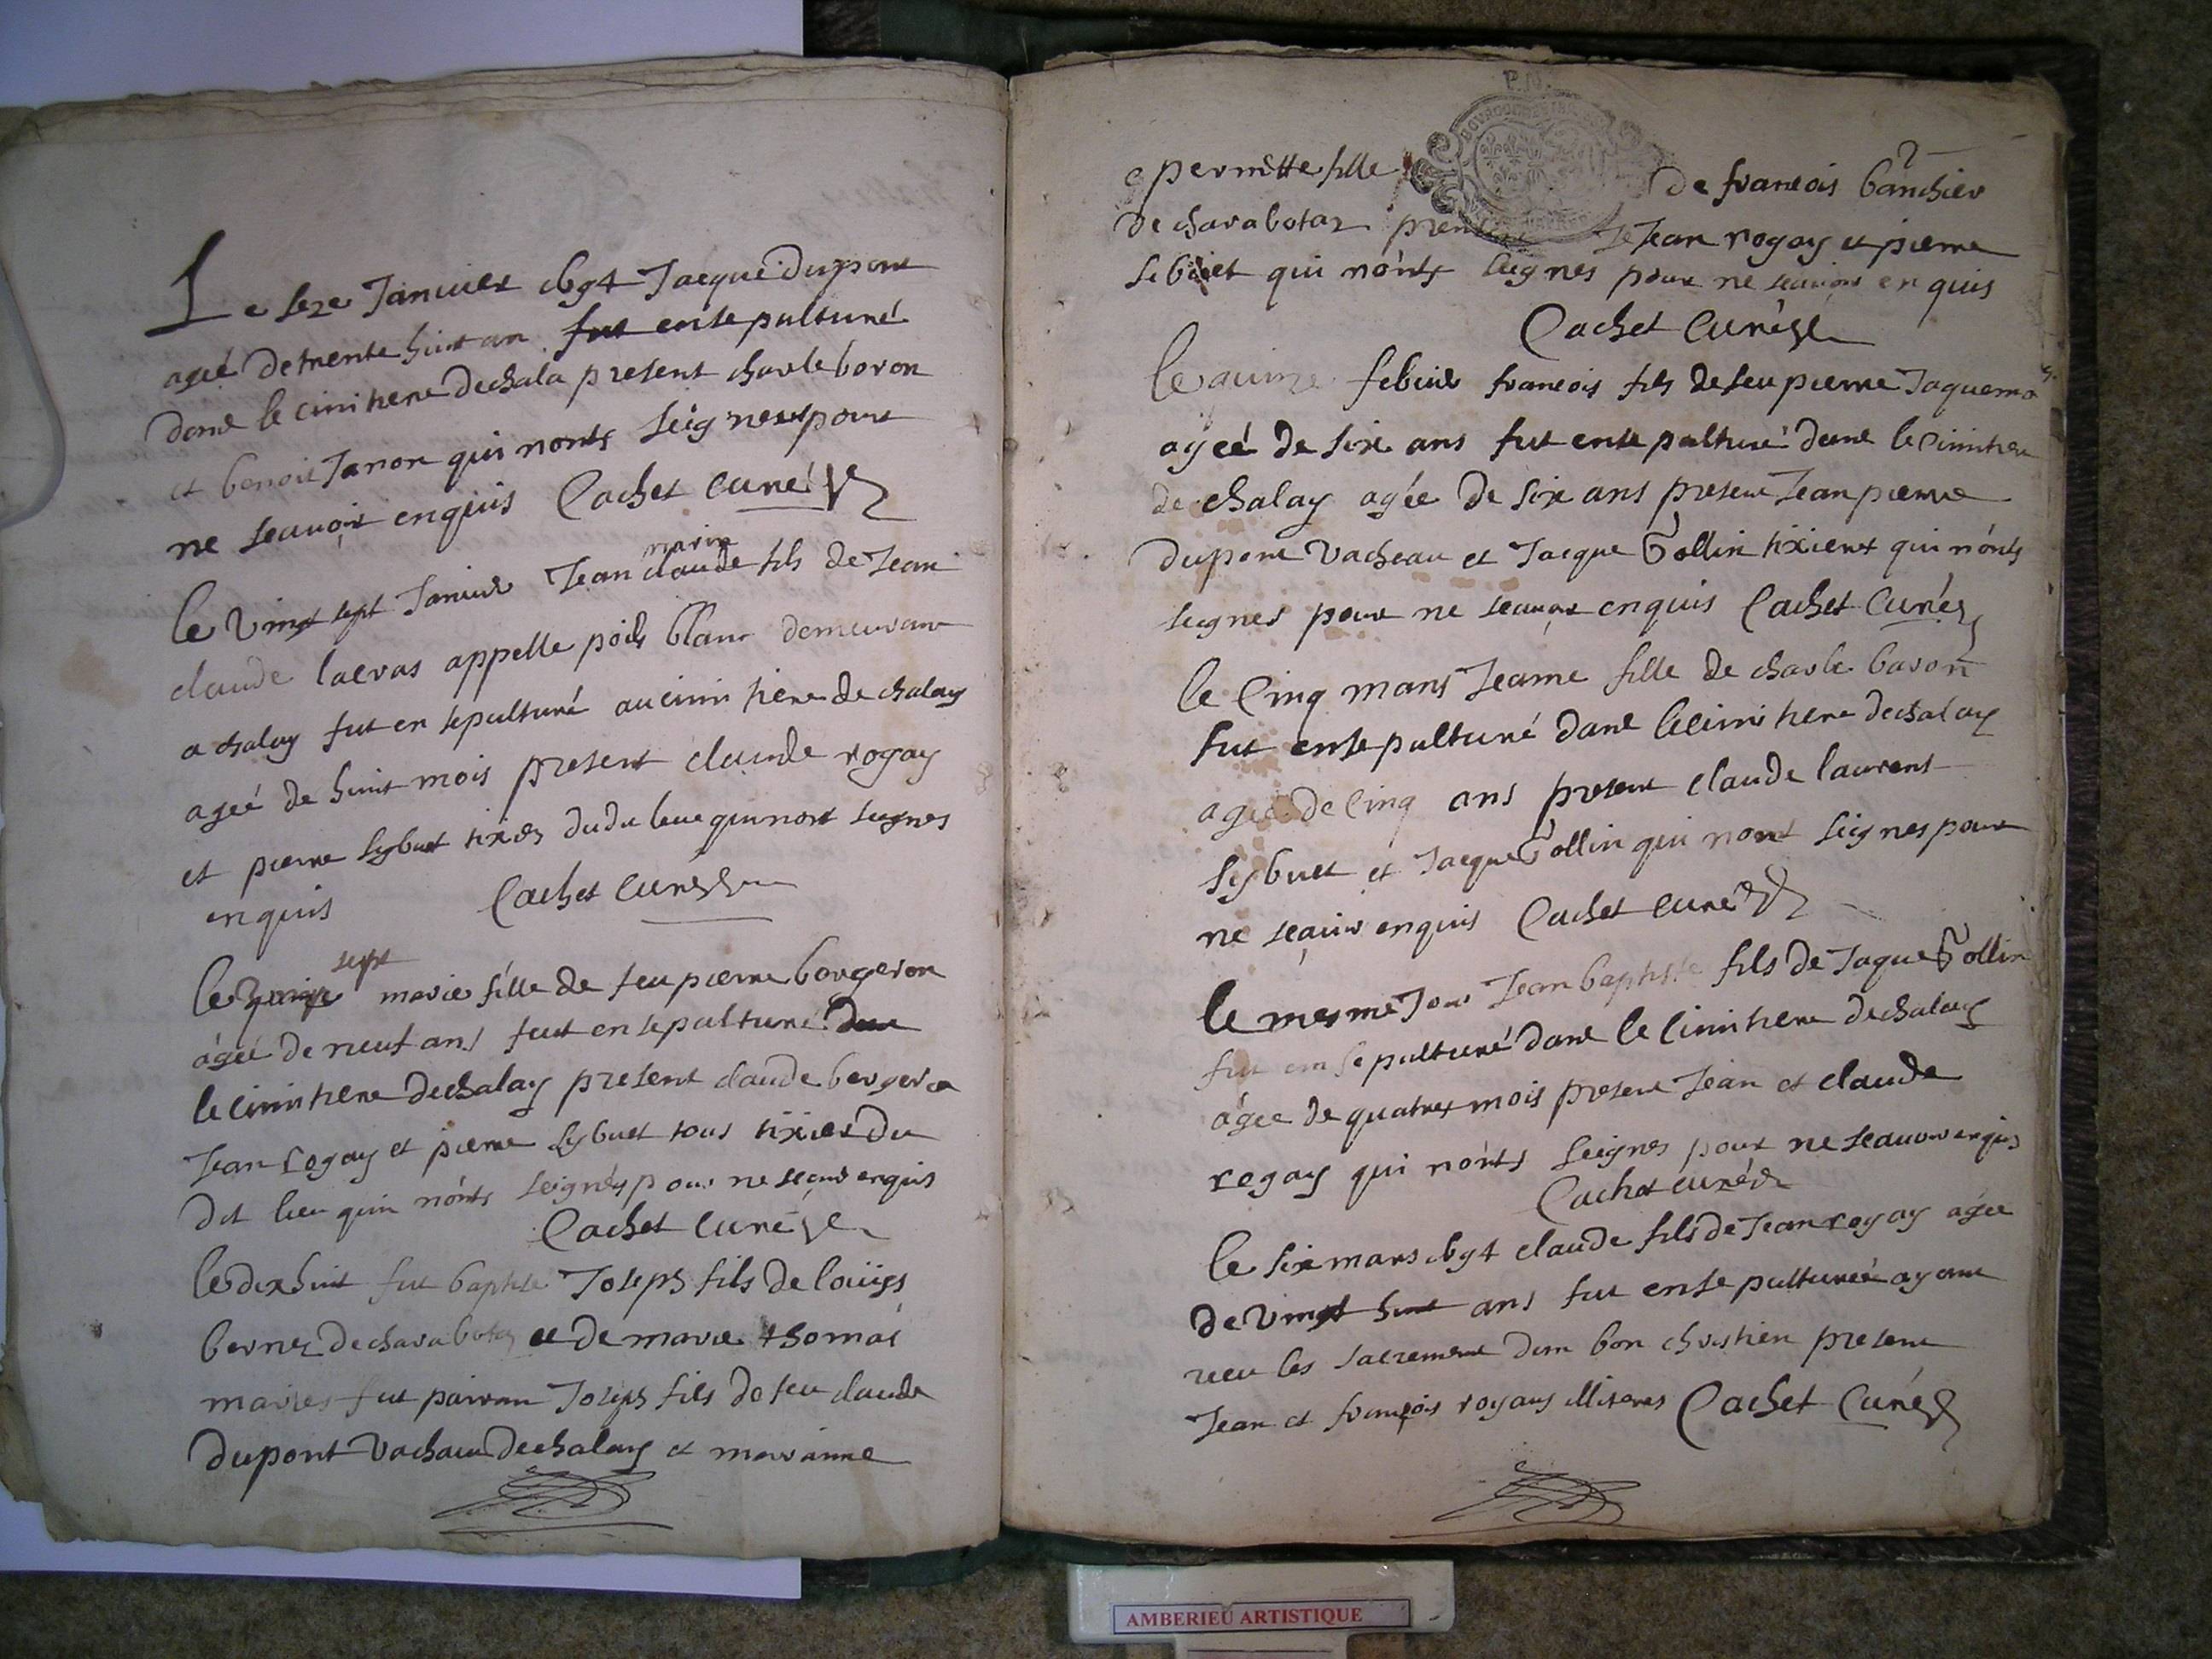 Le seze Janvier 1694 Jacque Dupont
ageé de trente huit an fut ensepulturé
dans le cimitiere de chala present charle boron
et benoit Janon qui nonts seignes pour
ne scauoir enquis Cachet curé
marin
le vingt sept Janvier Jean claude fils de Jean
claude lacras appelle poids blanc demeurant
a chalay fut ensepulturé au cimitiere de chalay
ageé de huit mois present claude rogay
et pierre sybuet tixier dudu lieu qui nont seignes
enquis Cachet curé
sept
le marie fille de feu pierre bergeron
ageé de neuf ans fut ensepulturé dans
le cimitiere de chalay present claude bergeron
Jean rogay et pierre sybuet tous tixier du
dit lieu qui nonts seignés pour ne scavoir enquis
Cachet curé
le dix huit fut baptise Joseph fils de loüys
bernez de charabotaz et de marie thomas
maries fut pairain Joseph fils de feu claude
dupont vachau de chalay et marianne
2
e permette fille de francois banchier
de charabotaz present Jean rogay et pierre
sibuet qui nonts seignes pour ne scauoir enquis
Cachet curé
le quinze febvier francois fils de feu pierre Jaquemo
ageé de six ans fut ensepulturé dans le cimitiere
de chalay agée de six ans present Jean pierre
dupont vacheau et Jacque tollin tixiers qui nonts
seignes pour ne scauoir enquis Cachet curé
le cinq mars Jeanne fille de charle baron
fut ensepulturé dans le cimitiere de chalay
ageé de cinq ans present claude laurent
sybuet et Jacque tollin qui nont seignes pour
ne scavoir enquis Cachet curé
le mesme Jour Jean baptiste fils de Jaque tollin
fut ensepulturé dans le cimitiere de chalay
ageé de quatre mois present Jean et claude
rogay qui nonts seignes pour ne scauoir enquis
Cachet curé
le six mars 1694 claude fils de Jean rogay agée
de vingt huit ans fut ensepulturée ayant
receu les sacrement dun bon chrestien present
Jean et françois rogay illiteres Cachet Curé
AMBERIEU ARTISTIQUE